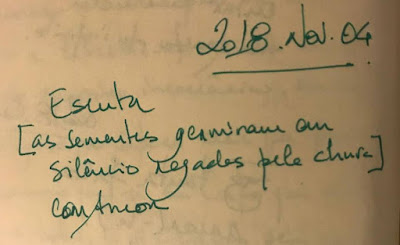 2018.Nov.04
Escuta
[as sementes germinam em
silêncio regadas pela chuva]